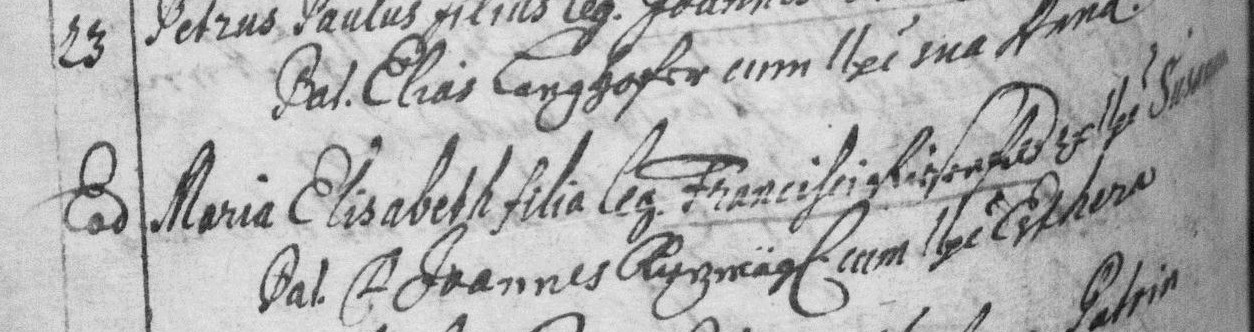 23 Petrus Paulus filius leg. Joannes
Pat. Elias Langhofer cum Upe sua Anna.
Eod Maria Elisabeth filia leg. Francisci ex Upe Susanna
Pat. D Joannes cum Upe Esthera
Patrin